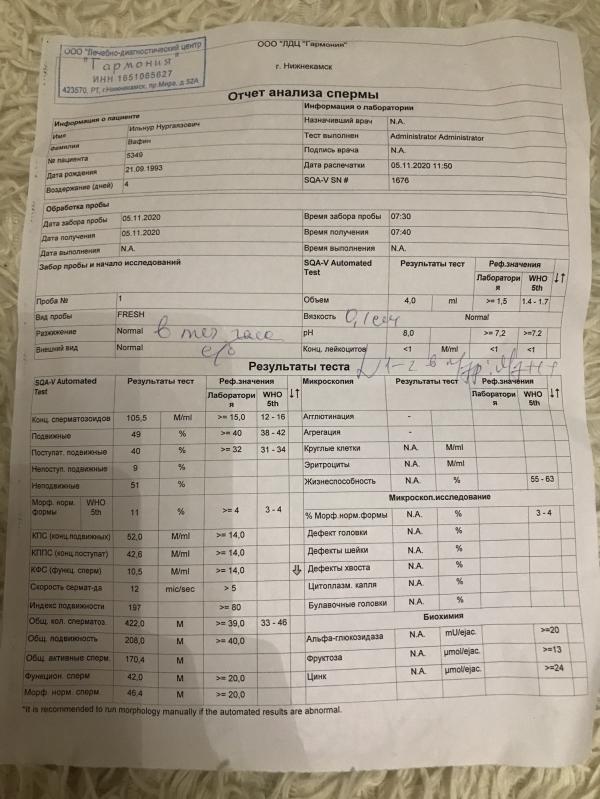 ООО "Лечебно-диагностический центр
"Гармония"
ИНН 1651065627
423570, РТ, г.Нижнекамск, пр.Мира, д.52А
ООО "ЛДЦ "Гармония"
г. Нижнекамск
Отчет анализа спермы
Информация о пациенте
Имя Ильнур Нургаязович
Фамилия Вафин
№ пациента 5349
Дата рождения 21.09.1993
Воздержание (дней) 4
Информация о лаборатории
Назначивший врач N.A.
Тест выполнен Administrator Administrator
Подпись врача N.A.
Дата распечатки 05.11.2020 11:50
SQA-V SN # 1676
Обработка пробы
Дата забора пробы 05.11.2020 Время забора пробы 07:30
Дата получения 05.11.2020 Время получения 07:40
Дата выполнения N.A. Время выполнения N.A.
Забор пробы и начало исследований
SQA-V Automated Test Результаты тест Реф.значения
Лаборатория WHO 5th ↓↑
Проба № 1 Объем 4,0 ml >= 1,5 1.4 - 1.7
Вид пробы FRESH Вязкость 0,1 см Normal
Разжижение Normal pH 8,0 >= 7,2 >=7.2
Внешний вид Normal Конц. лейкоцитов <1 M/ml <1 <1
Результаты теста
SQA-V Automated Test Результаты тест Реф.значения
Лаборатория WHO 5th ↓↑
Конц. сперматозоидов 105,5 M/ml >= 15,0 12 - 16
Подвижные 49 % >= 40 38 - 42
Поступат. подвижные 40 % >= 32 31 - 34
Непоступ. подвижные 9 %
Неподвижные 51 %
Морф. норм. формы WHO 5th 11 % >= 4 3 - 4
КПС (конц.подвижных) 52,0 M/ml >= 14,0
КППС (конц.поступат) 42,6 M/ml >= 14,0
КФС (функц. сперм) 10,5 M/ml >= 14,0 ⇩
Скорость сермат-да 12 mic/sec > 5
Индекс подвижности 197 >= 80
Общ. кол. сперматоз. 422,0 M >= 39,0 33 - 46
Общ. подвижность 208,0 M >= 40,0
Общ. активные сперм. 170,4 M
Функцион. сперм 42,0 M >= 20,0
Морф. норм. сперм. 46,4 M >= 20,0
Микроскопия Результаты тест Реф.значения
Лаборатория WHO 5th ↓↑
Агглютинация -
Агрегация -
Круглые клетки N.A. M/ml
Эритроциты N.A. M/ml
Жизнеспособность N.A. % 55 - 63
Микроскоп.исследование
% Морф.норм.формы N.A. % 3 - 4
Дефект головки N.A. %
Дефекты шейки N.A. %
Дефекты хвоста N.A. %
Цитоплазм. капля N.A. %
Булавочные головки N.A. %
Биохимия
Альфа-глюкозидаза N.A. mU/ejac. >=20
Фруктоза N.A. µmol/ejac. >=13
Цинк N.A. µmol/ejac. >=24
*It is recommended to run morphology manually if the automated results are abnormal.